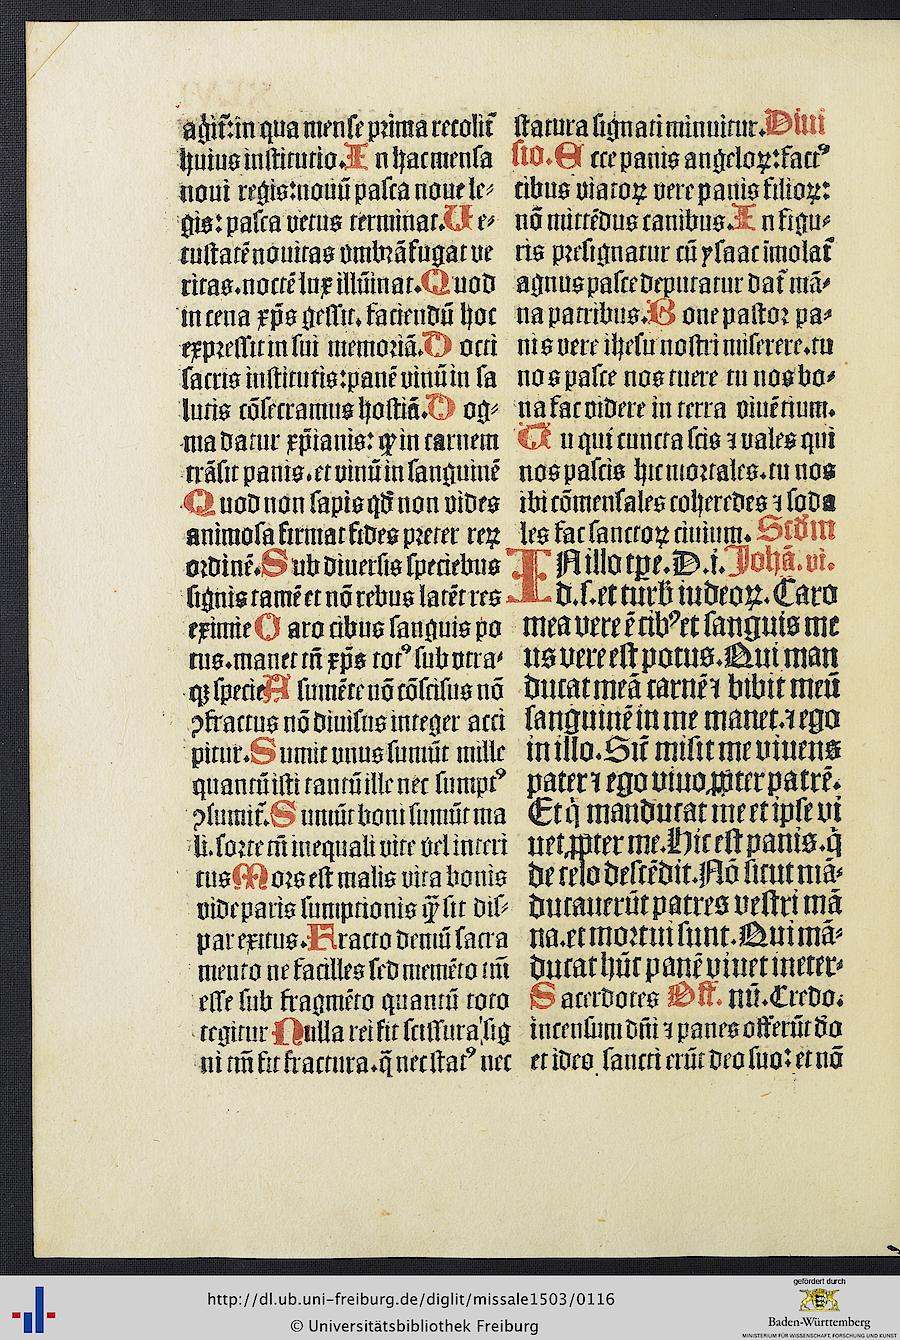 agit᷑:in qua mense prima recolit᷑
huius institutio.I n hac mensa
noui regis:nouū pasca noue le⸗
gis: pasca vetus terminat.V e⸗
tustatē nouitas vmbrā fugat ve
ritas.noctē lux illūinat.Quod
in cena xp̄s gessit. faciendū hoc
expressit in sui memoriā.D octi
sacris institutis:panē vinū in sa
lutis cōsecramus hostiā.D og⸗
ma datur xp̄ianis: ꝙ in carnem
trāsit panis.et vinū in sanguinē
Quod non capis qd̄ non vides
animosa firmat fides preter reꝝ
ordinē.Sub diuersis speciebus
signis tamē et nō rebus latēt res
eximie C aro cibus sanguis po
tus.manet tn̄ xp̄s totꝰ sub vtra⸗
qꝫ specie A sumēte nō cōscisus nō
ꝯfractus nō diuisus integer acci
pitur.Sumit vnus sumūt mille
quantū isti tantū ille nec sumptꝰ
ꝯsumit᷑.Sumūt boni sumūt ma
li. sorte tn̄ inequali vite vel interi
tus Mors est malis vita bonis
vide paris sumptionis ꝙ̄ sit dis⸗
par exitus.Fracto demū sacra
mento ne facilles sed memēto tn̄
esse sub fragmēto quantū toto
tegitur Nulla rei fit scissura sig
ni tn̄ fit fractura.q̄ nec statꝰ nec
statura signati minuitur.Diui
sio.E cce panis angeloꝝ:factꝰ
cibus viatoꝝ vere panis filioꝝ:
nō mittēdus canibus.I n figu⸗
ris presignatur cū ysaac imolat᷑
agnus pasce deputatur dat᷑ mā⸗
na patribus.B one pastor pa⸗
nis vere ihesu nostri miserere.tu
nos pasce nos tuere tu nos bo⸗
na fac videre in terra viuētium.
T u qui cuncta scis ⁊ vales qui
nos pascis hic mortales.tu nos
ibi cōmensales coheredes ⁊ soda
les fac sanctoꝝ ciuium. Scd̄m
IN illo tp̄e.D.i.Johā.vi.
d.s.et turb̄ iudeoꝝ.Caro
mea vere ē cibꝰ et sanguis me
us vere est potus.Qui man
ducat meā carnē ⁊ bibit meū
sanguinē in me manet.⁊ ego
in illo.Sic̄ misit me viuens
pater ⁊ ego viuo ꝓpter patrē.
Et q̄ manducat me et ipse vi
uet ꝓpter me.Hic est panis.q̄
de celo descēdit.Nō sicut mā⸗
ducauerūt patres vestri mā
na.et mortui sunt.Qui mā⸗
ducat hūc panē viuet in eter⸗
Sacerdotes Off. nū.Credo.
incensum dn̄i ⁊ panes offerūt do
et ideo sancti erūt deo suo: et nō
http://dl.ub.uni-freiburg.de/diglit/missale1503/0116
© Universitätsbibliothek Freiburg
gefördert durch
Baden-Württemberg
MINISTERIUM FÜR WISSENSCHAFT, FORSCHUNG UND KUNST